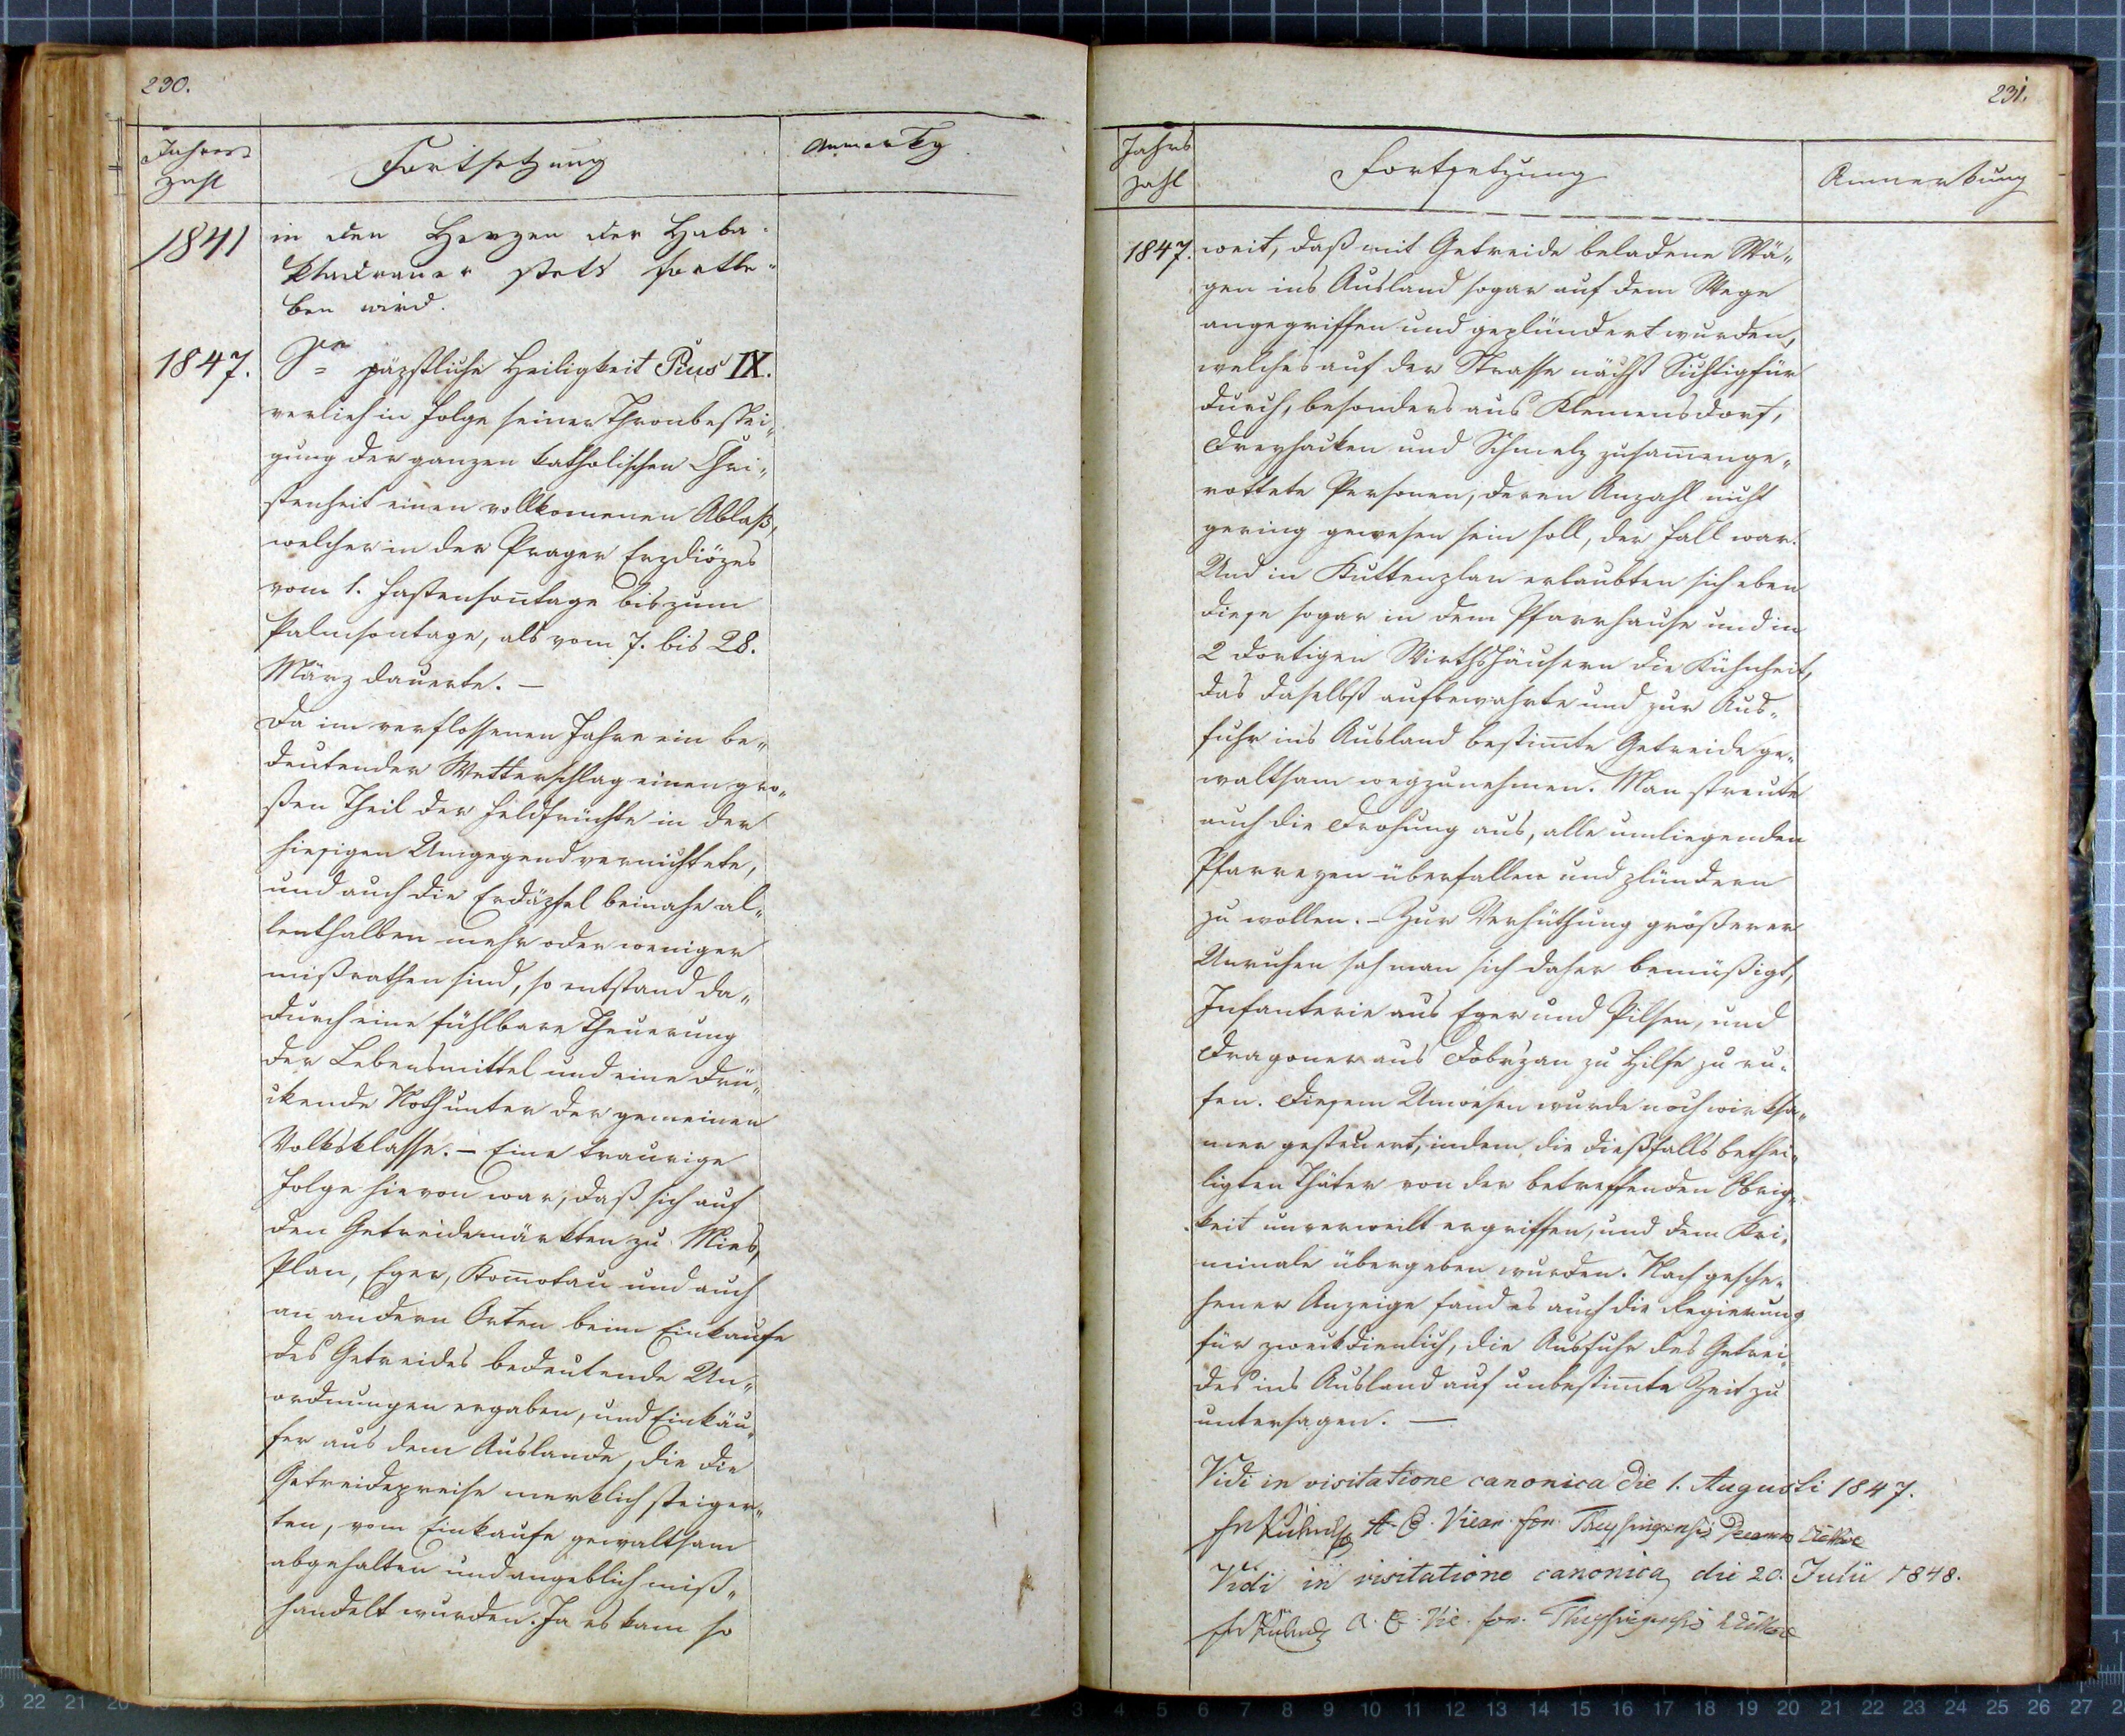 230.
Jahres
zahl
Fortsetzung
Anmerkg
1841
in den Herzen der Haba-
kladrauer stets fortle-
ben wird.
1847.
Se päpstliche Heiligkeit Pius IX.
verlieh in Folge seiner Thronbestei„
gung der ganzen katholischen Chri„
stenheit einen vollkom̄enen Ablaß,
welcher in der Prager Erzdiözes
vom 1. Fastenson̄tage bis zum
Palmsontage, als vom 7. bis 28.
März dauerte. —
Da im verflossenen Jahre ein be„
deutender Wetterschlag einen gro„
ßen Theil der Feldfrüchte in der
hiesigen Umgegend vernichtete,
und auch die Erdäpfel beinahe al„
lenthalben mehr oder weniger
mißrathen sind, so entstand da„
durch eine fühlbare Theuerung
der Lebensmittel und eine drü„
ckende Noth unter der gemeinen
Volksklasse. – Eine traurige
Folge hievon war, daß sich auf
den Getreidemärkten zu Mies,
Plan, Eger, Kom̄otau und auch
an andern Orten beim Einkaufe
des Getreides bedeutende Un„
ordnungen ergaben, und Einkäu„
fer aus dem Auslande, die die
Getreidepreise merklich steiger„
ten, vom Einkaufe gewaltsam
abgehalten und angeblich miß„
handelt wurden. Ja es kam so
231.
Jahrs
zahl
Fortsetzung
Anmerkung
1847.
weit, daß mit Getreide beladene Wä„
gen ins Ausland sogar auf dem Wege
angegriffen und geplündert wurden,
welches auf der Strasse nächst Sichligfür
durch, besonders aus Klemensdorf,
Dreyhacken und Schmelz zusam̄enge„
rottete Personen, deren Anzahl nicht
gering gewesen sein soll, der Fall war.
Und in Kuttenplan erlaubten sich eben
diese sogar in dem Pfarrhause und in
2 dortigen Wirthshäusern die Kühnheit,
das daselbst aufbewahrte und zur Aus„
fuhr ins Ausland bestim̄te Getreide ge„
waltsam wegzunehmen. Man streute
auch die Drohung aus, alle umliegenden
Pfarreyen überfallen und plündern
zu wollen. – Zur Verhüthung größerer
Unruhen sah man sich daher bemüßigt,
Infanterie aus Eger und Pilsen, und
Dragoner aus Dobrzan zu Hilfe zu ru„
fen. Diesem Unwesen wurde noch wirksa„
mer gesteuert, indem die dießfalls bethei„
ligten Thäter von der betreffenden Obrig„
keit unverweilt ergriffen, und dem Kri„
minale übergeben wurden. Nach gesche„
hener Anzeige fand es auch die Regierung
für zweckdienlich, die Ausfuhr des Getrei„
des ins Ausland auf unbestim̄te Zeit zu
untersagen. —
Vidi in visitatione canonica die 1. Augusti 1847.
A. E. Vicar. for. Theysingensis
Vidi in visitatione canonica die 20. Julii 1848.
A. E. Vic. for. Theysingensis